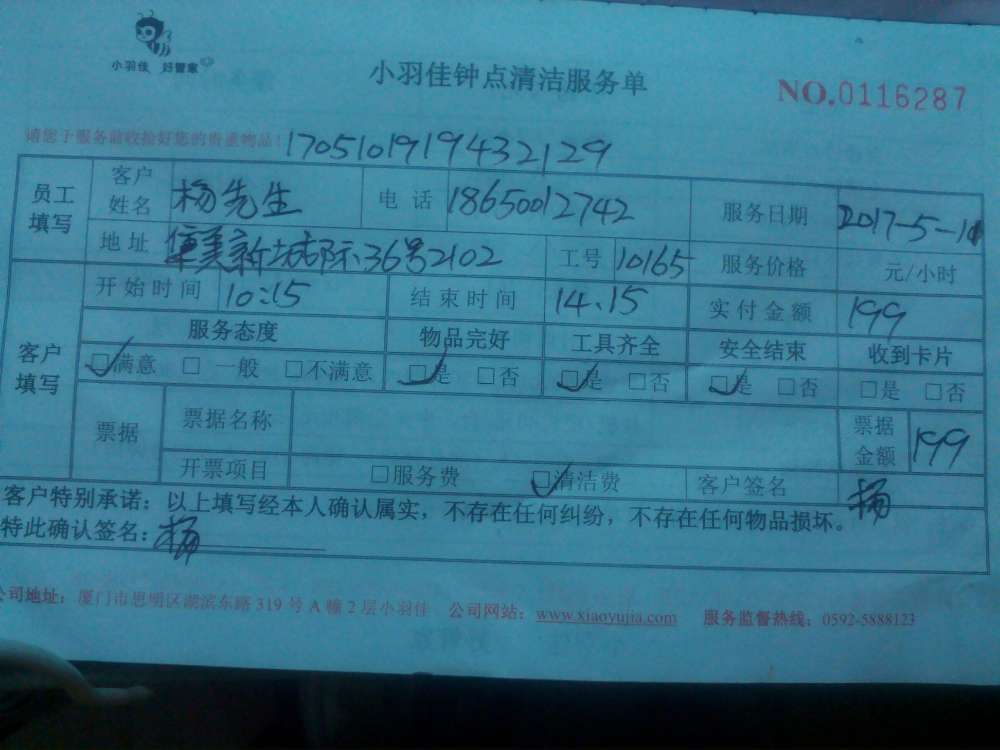 小羽佳 好管家
小羽佳钟点清洁服务单
NO.0116287
请您于服务前收拾好您的贵重物品!
1705101919432129
员工填写 客户姓名 杨先生 电话 18650012742 服务日期 2017-5-10
地址 集美新城际36号2102 工号 10165 服务价格 元/小时
客户填写 开始时间 10:15 结束时间 14.15 实付金额 199
服务态度 物品完好 工具齐全 安全结束 收到卡片
☑满意 □一般 □不满意 ☑是 □否 ☑是 □否 ☑是 □否 □是 □否
票据 票据名称 票据金额 199
开票项目 □服务费 ☑清洁费 客户签名 杨
客户特别承诺：以上填写经本人确认属实，不存在任何纠纷，不存在任何物品损坏。
特此确认签名：杨
公司地址：厦门市思明区湖滨东路319号A幢2层小羽佳 公司网站：www.xiaoyujia.com 服务监督热线：0592-5888123